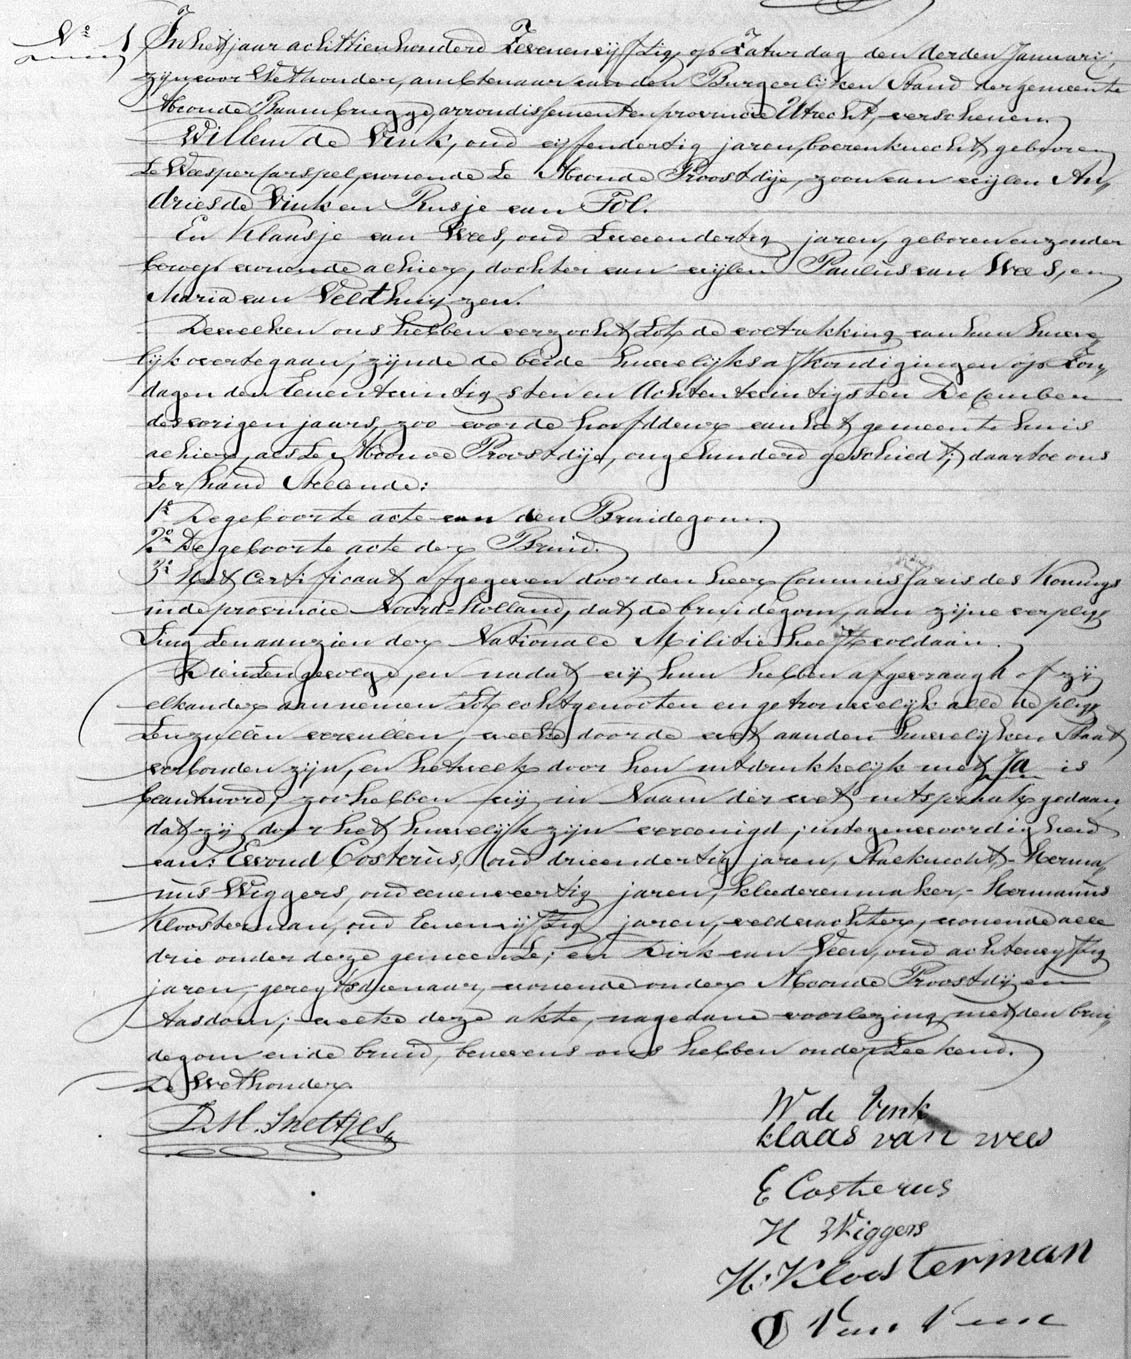 No. 1 In het jaar achttienhonderd Zevenenvijftig, op Zaturdag den derden Januarij,
zijn voor Wethouder, ambtenaar van den Burgerlijken Stand der gemeente
Abcoude Baambrugge, arrondissement en provincie Utrecht, verschenen.
Willem de Vink, oud vijfendertig jaren, boerenknecht, geboren
te Weespercarspel, wonende te Abcoude Proostdije, zoon van wijlen An,,
dries de Vink en Rusje van Tol.
En Klaasje van Wees, oud tweeendertig jaren, geboren en zonder
beroep wonende alhier, dochter van wijlen Paulus van Wees, en
Maria van Veldhuijzen.
Dewelken ons hebben verzocht tot de voltrekking van hun huwe,,
lijk overtegaan; zijnde de beide huwelijksafkondigingen op Zon,,
dagen den Eenentwintigsten en Achtentwintigsten December
des vorigen jaars, zoo voor de hoofddeur van het gemeente huis
alhier, als te Abcoude Proostdije, ongehinderd geschiedt; daartoe ons
ter hand stellende:
1e De geboorte acte van den Bruidegom.
2e De geboorte acte der Bruid.
3e Het Certificaat afgegeven door den heer Commissaris des Konings
in de provincie Noord=Holland, dat de bruidegom, aan zijne verplig,,
ting ten aanzien der Nationale Militie heeft voldaan.
Dientengevolge, en nadat wij hun hebben afgevraagd of zij
elkander aannemen tot echtgenooten en getrouwelijk alle de plig,,
ten zullen vervullen, welke door de wet aan den huwelijken Staat
verbonden zijn, en hetwelk door hen uitdrukkelijk met Ja is
beantwoord; zoo hebben wij in Naam der wet uitspraak gedaan,
dat zij door het huwelijk zijn vereenigd; in tegenwoordigheid
van: Ewoud Costerus, oud drieendertig jaren, Stalknecht,- Herma,,
nus Wiggers, oud eenenveertig jaren, kleederenmaker,- Hermanus
Kloosterman, oud Eenenvijftig jaren, veldwachter, wonende alle
drie onder deze gemeente; en Dirk van Veen, oud achtenvijftig
jaren, geregtsdienaar, wonende onder Abcoude Proostdij en
Aasdom; welke deze akte, na gedane voorlezing met den brui,,
degom en de bruid, benevens ons hebben onderteekend.
De Wethouder
D. M. Sneltjes
W de Vink
klaas van wees
E Costerus
H Wiggers
H: Kloosterman
D Van Veen